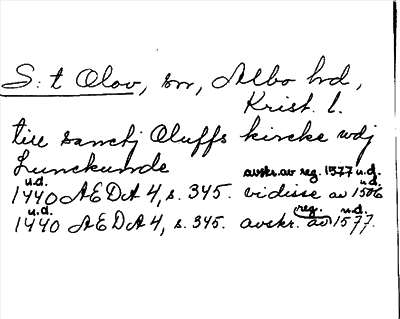 S:t Olov, sn, Albo hd,
Krist. l.
till sanctj Oluffs kircke wdj
Lunckunde
avskr. av reg. 1577 u.d.
u.d. u.d.
1440 AEDA 4, s. 345. vidisse av 1506
u.d. reg. u.d.
1440 AEDA 4, s. 345. avskr. av 1577.